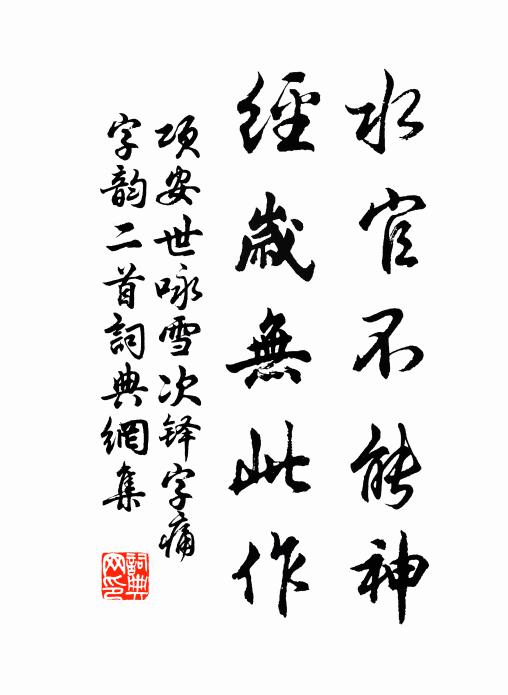 水官不能神
經歲無此作
项安世咏雪次铎字痛
字韵二首詞典網集
詞典网印